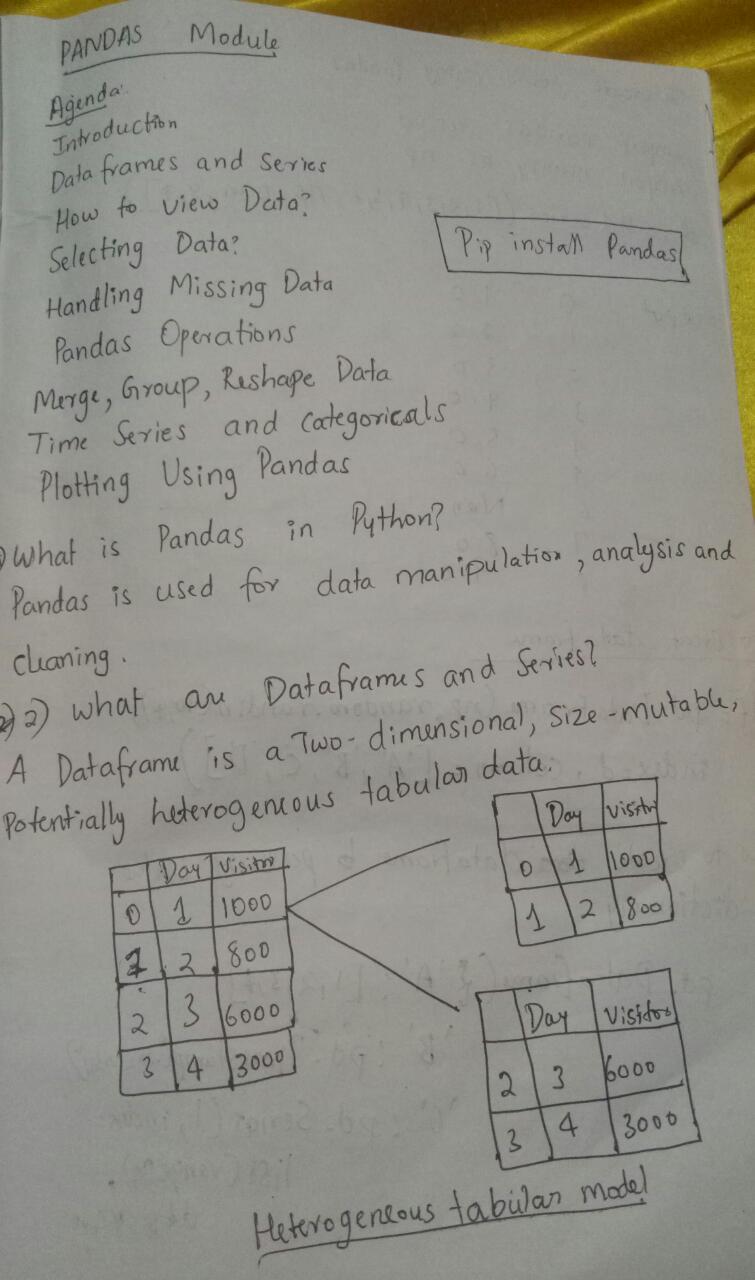 PANDAS Module
Agenda
Introduction
Data frames and Series
How to view Data?
Selecting Data?
Pip install Pandas
Handling Missing Data
Pandas Operations
Merge, Group, Reshape Data
Time Series and Categoricals
Plotting Using Pandas
What is Pandas in Python?
Pandas is used for data manipulation, analysis and
cleaning.
2) what are Dataframes and Series?
A Dataframe is a Two-dimensional, Size-mutable,
Potentially heterogeneous tabular data.
Day Visitor
0 1 1000
1 2 800
2 3 6000
3 4 3000
Day Visitor
0 1 1000
1 2 800
Day Visitors
2 3 6000
3 4 3000
Heterogeneous tabular model